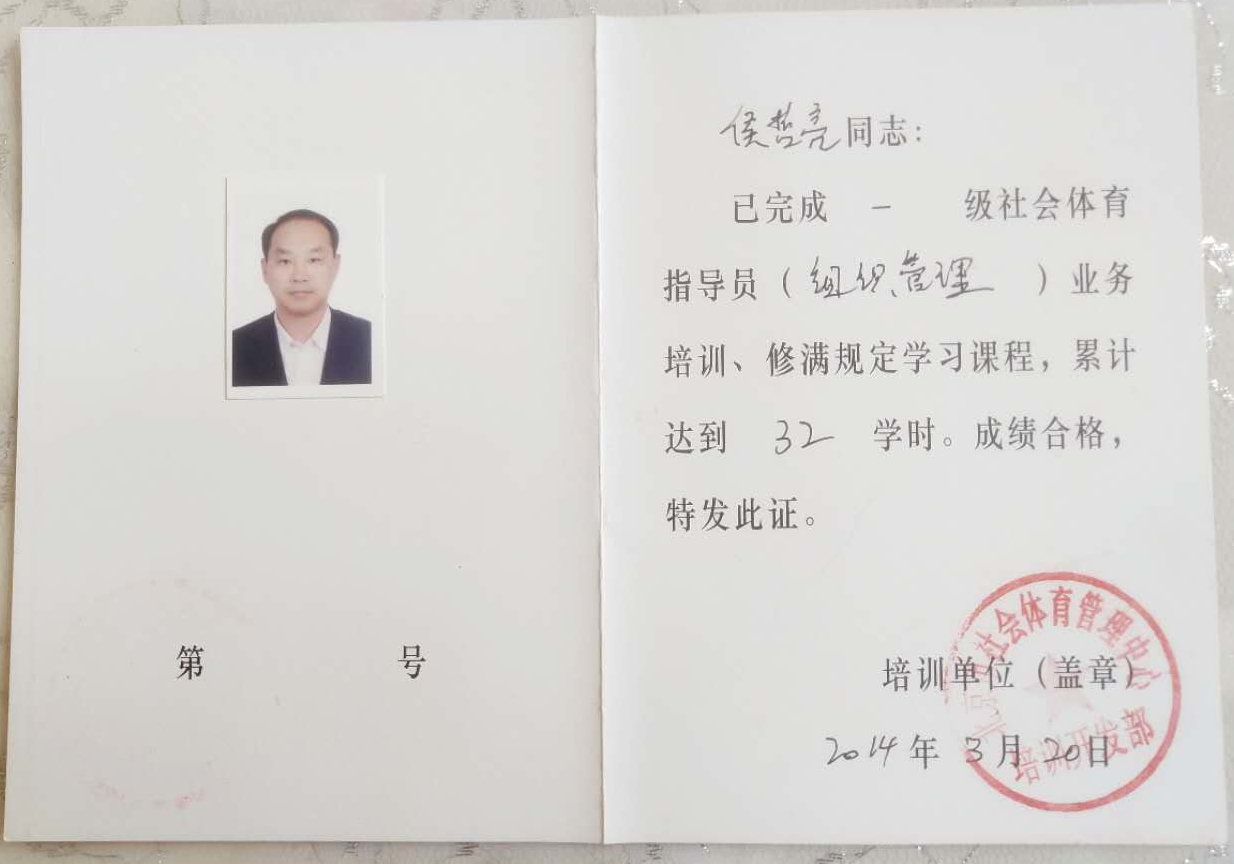 第 号
侯哲亮同志:
已完成 一 级社会体育
指导员(组织管理)业务
培训、修满规定学习课程,累计
达到 32 学时。成绩合格,
特发此证。
北京市社会体育管理中心
培训单位(盖章)
培训开发部
2014年3月20日